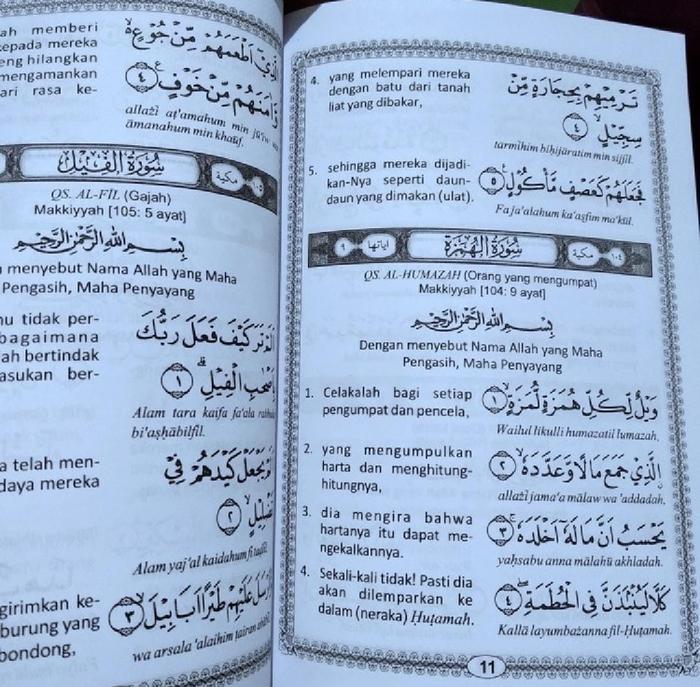 ah memberi
kepada mereka
eng hilangkan
mengamankan
ari rasa ke-
الَّذِيْٓ اَطْعَمَهُمْ مِّنْ جُوْعٍ
وَّاٰمَنَهُمْ مِّنْ خَوْفٍ ٤
allażī aṭ'amahum min jū'iw
āmanahum min khaūf.
سُوْرَةُ الْفِيْلِ
مكية
١٠٥
QS. AL-FĪL (Gajah)
Makkiyyah [105: 5 ayat]
بِسْمِ اللهِ الرَّحْمٰنِ الرَّحِيْمِ
menyebut Nama Allah yang Maha
Pengasih, Maha Penyayang
u tidak per-
bagaimana
ah bertindak
asukan ber-
اَلَمْ تَرَ كَيْفَ فَعَلَ رَبُّكَ
بِاَصْحٰبِ الْفِيْلِ ١
Alam tara kaifa fa'ala rabbuka
bi'aṣḥābilfīl.
a telah men-
daya mereka
اَلَمْ يَجْعَلْ كَيْدَهُمْ فِيْ
تَضْلِيْلٍ ٢
Alam yaj'al kaidahum fī taḍlīl.
girimkan ke-
burung yang
bondong,
وَّاَرْسَلَ عَلَيْهِمْ طَيْرًا اَبَابِيْلَ ٣
wa arsala 'alaihim ṭairan abābīl.
4. yang melempari mereka
dengan batu dari tanah
liat yang dibakar,
تَرْمِيْهِمْ بِحِجَارَةٍ مِّنْ
سِجِّيْلٍ ٤
tarmīhim biḥijāratim min sijjīl.
5. sehingga mereka dijadi-
kan-Nya seperti daun-
daun yang dimakan (ulat).
فَجَعَلَهُمْ كَعَصْفٍ مَّأْكُوْلٍ ٥
Faja'alahum ka'aṣfim ma'kūl.
١٠٤
مكية
سُوْرَةُ الْهُمَزَةِ
اياتها
٩
QS. AL-HUMAZAH (Orang yang mengumpat)
Makkiyyah [104: 9 ayat]
بِسْمِ اللهِ الرَّحْمٰنِ الرَّحِيْمِ
Dengan menyebut Nama Allah yang Maha
Pengasih, Maha Penyayang
1. Celakalah bagi setiap
pengumpat dan pencela,
وَيْلٌ لِّكُلِّ هُمَزَةٍ لُّمَزَةٍ ١
Wailul likulli humazatil lumazah,
2. yang mengumpulkan
harta dan menghitung-
hitungnya,
اِلَّذِيْ جَمَعَ مَالًا وَّعَدَّدَهٗ ٢
allażī jama'a mālaw wa 'addadah,
3. dia mengira bahwa
hartanya itu dapat me-
ngekalkannya.
يَحْسَبُ اَنَّ مَالَهٗٓ اَخْلَدَهٗ ٣
yaḥsabu anna mālahū akhladah.
4. Sekali-kali tidak! Pasti dia
akan dilemparkan ke
dalam (neraka) Ḥuṭamah.
كَلَّا لَيُنْۢبَذَنَّ فِى الْحُطَمَةِ ٤
Kallā layumbażanna fil-Ḥuṭamah.
11